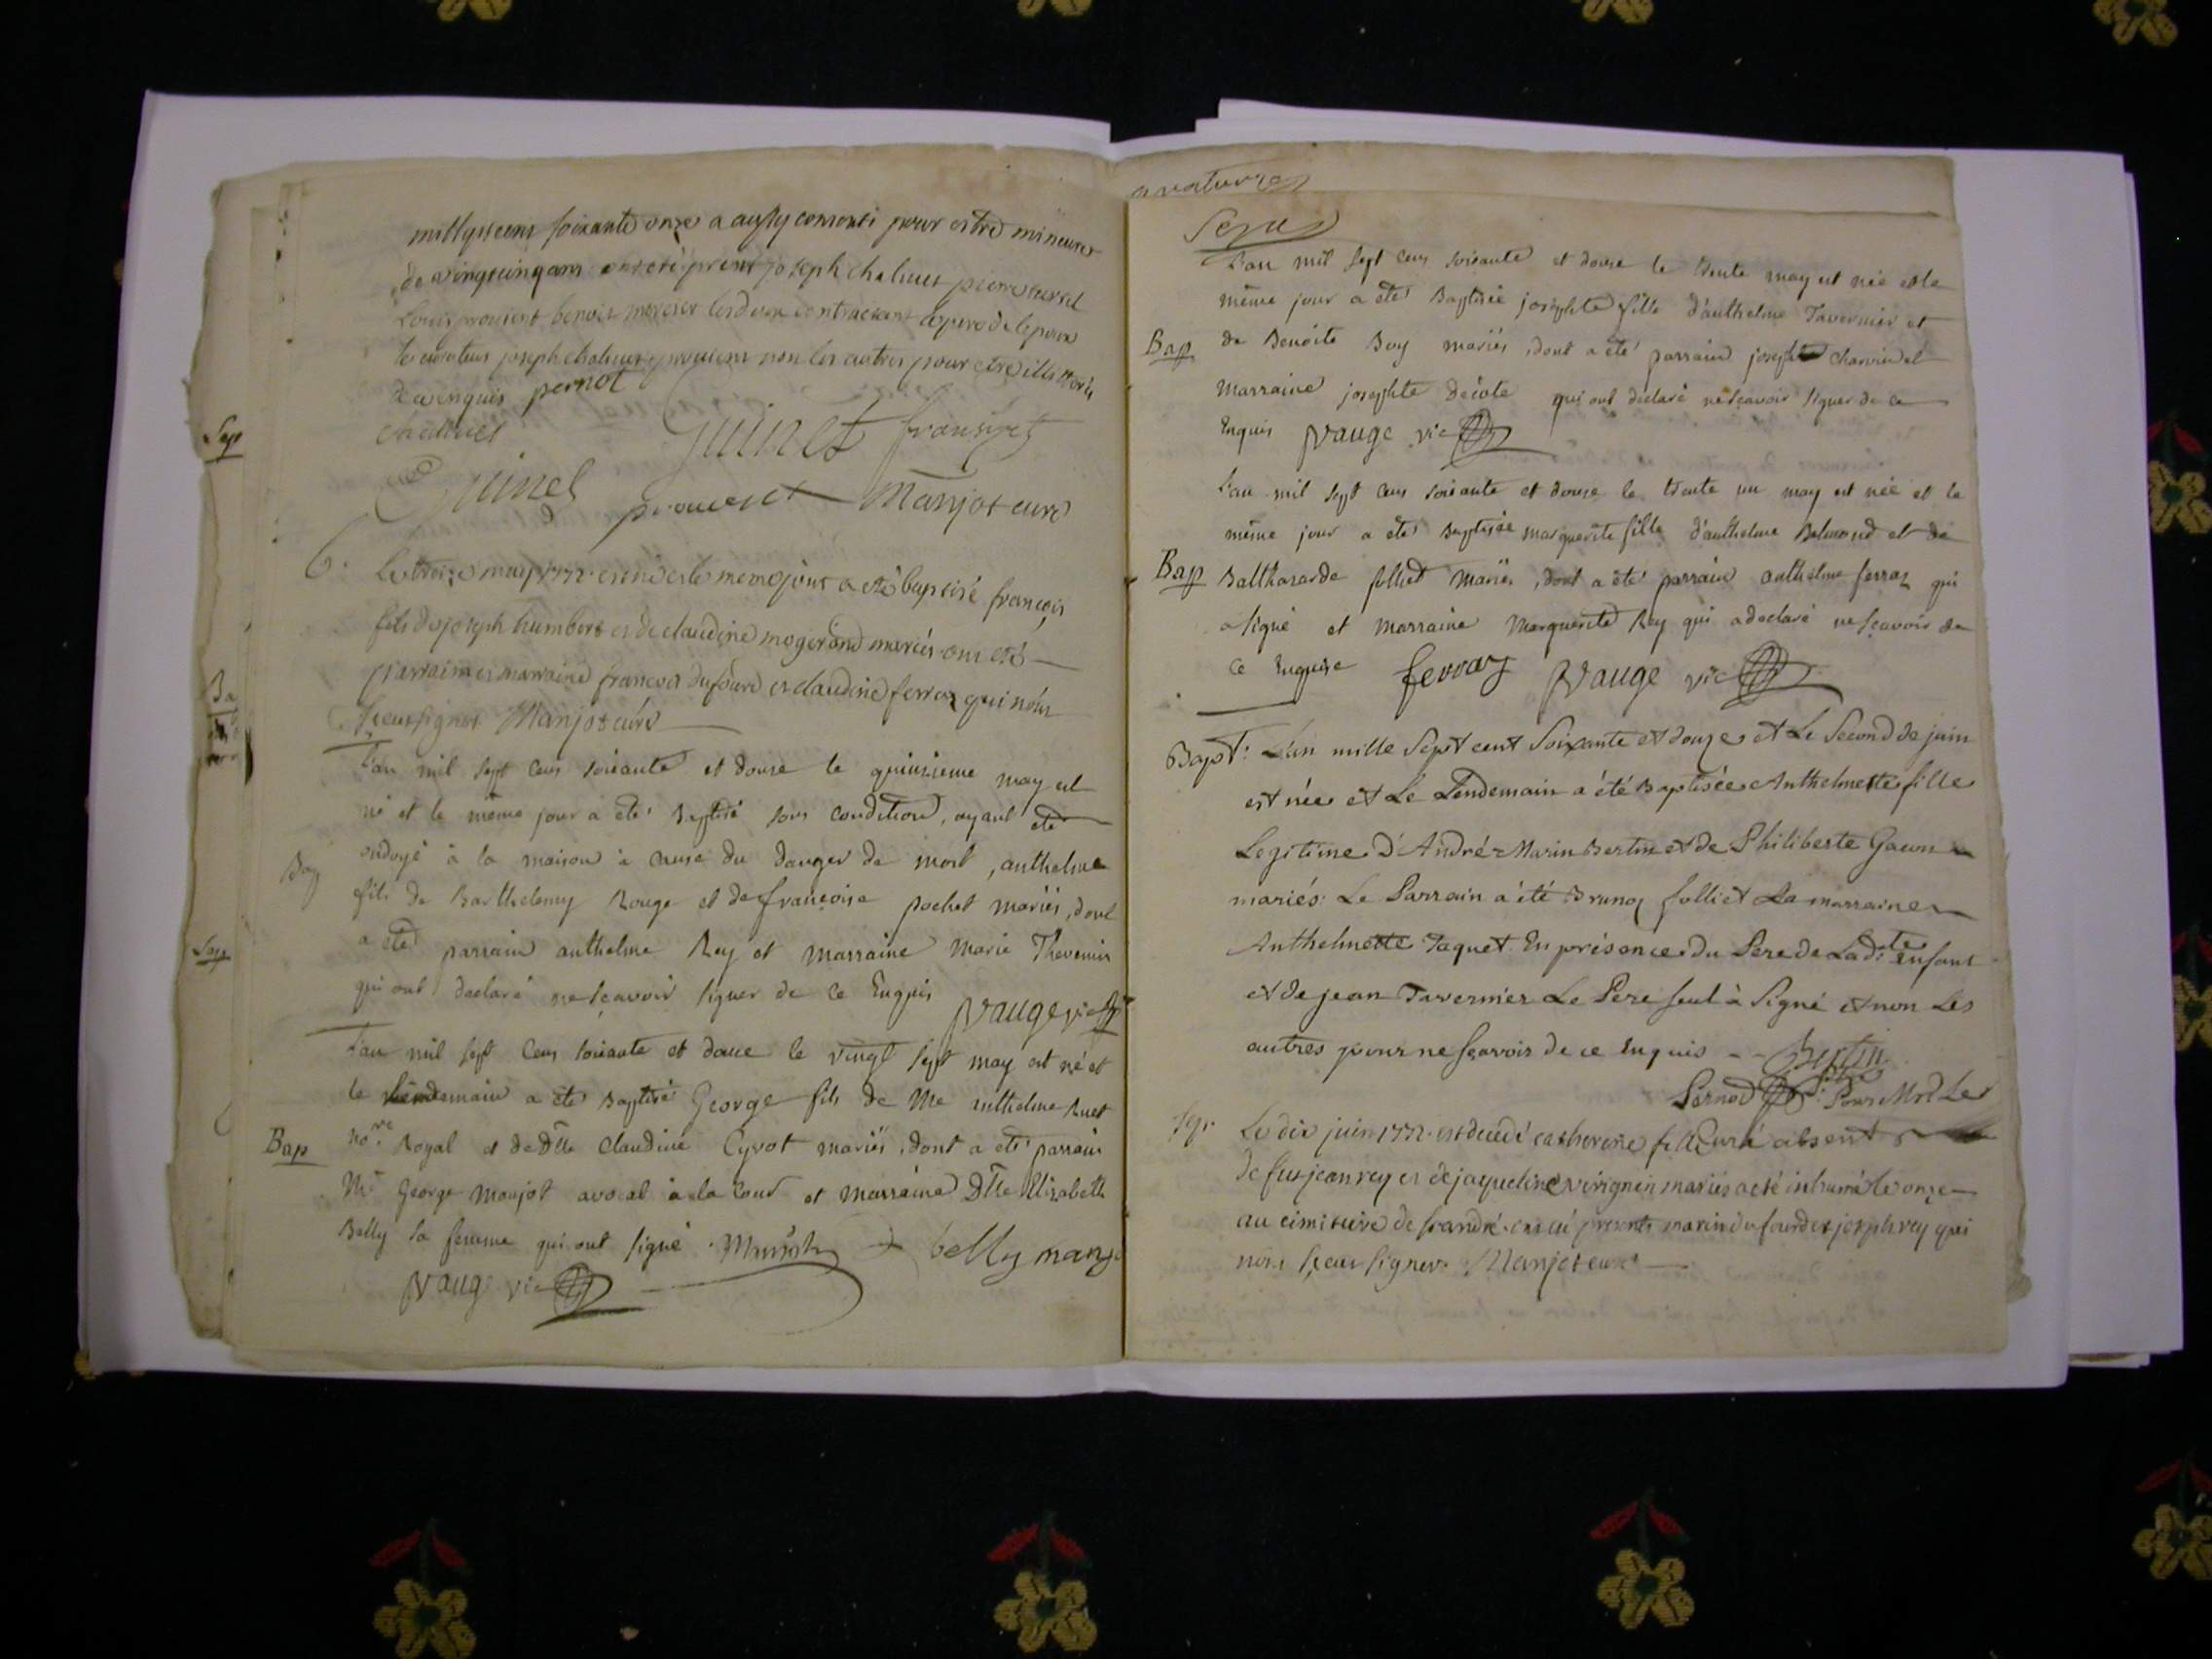 mil septcens soixante onze a aussy consenti pour estre mineure
de vingtcinq ans ont eté presents joseph chalmet pierre
Louis provient benoit mercier lesdeux contractant le pere de lepoux
le curateur joseph chalmet provient non les autres pour etre illiterés
de ce enquis pernot
Guinet françois
Guinet provent Manjot curé
B. Le treize may 1772. est né et le meme jour a eté baptisé françois
fils de joseph humbert et de claudine mogerand mariés. ont eté
parrain et marraine françois dufourd et claudine ferraz qui n'ont
sceu signer Manjot curé
L'an mil sept cens soixante et douze le quinzieme may est
né et le même jour a eté baptisé sous condition, ayant eté
Bap
ondoyé à la maison à cause du danger de mort, anthelme
fils de Barthelemy Rouge et de françoise pochet mariés, dont
a eté parrain anthelme Rey et marraine Marie Thevenin
qui ont declaré ne sçavoir signer de ce Enquis Vauge vic
L'an mil sept cens soixante et douze le vingt sept may est né et
le lendemain a eté baptisé George fils de Me anthelme Ruet
Bap
no.re Royal et de Dlle Claudine Cyvot mariés, dont a eté parrain
Mr George Manjot avocat à la cour et marraine Dlle Elizabeth
Belly sa femme qui ont signé Manjot belly manjo
Vauge vic
Sepu
L'an mil sept cens soixante et douze le trente may est née et le
même jour a eté Baptisée josephte fille d'anthelme Tavernier et
Bap
de Benoite Boy mariés, dont a été parrain joseph Charvin et
Marraine josephte Decote qui ont declaré ne sçavoir signer de ce
Enquis Vauge vic
L'an mil sept cens soixante et douze le trente un may est née et le
même jour a eté baptisée marguerite fille d'anthelme Belmond et de
Bap
Balthazarde folliet Mariés, dont a été parrain anthelme ferraz qui
a signé et Marraine Marguerite Rey qui a declaré ne sçavoir de
ce Enquise ferraz Vauge vic
Bapt: L'an mille Sept cent Soixante et douze et Le Second de juin
est née et Le Lendemain a été Baptisée Anthelmette fille
Legitime d'André-Marin Bertin et de Philiberte Gacon
mariés. Le Parrain a été Brunoz folliet La marraine
Anthelmette Taquet. En présence du Pere de Ladte enfant
et de jean Tavernier Le Pere seul a Signé et non Les
autres pour ne sçavoir de ce Enquis -- Bertin
Pernod ptre Pour Mr Le
Curé absent
Sep. Le dix juin 1772. est decedé catherine fille
de feu jean rey et de jaqueline virignin mariés a eté inhumé le onze
au cimitiere de st andré. ont eté presents marin dufourd et joseph rey qui
n'ont sceu signer. Manjot curé